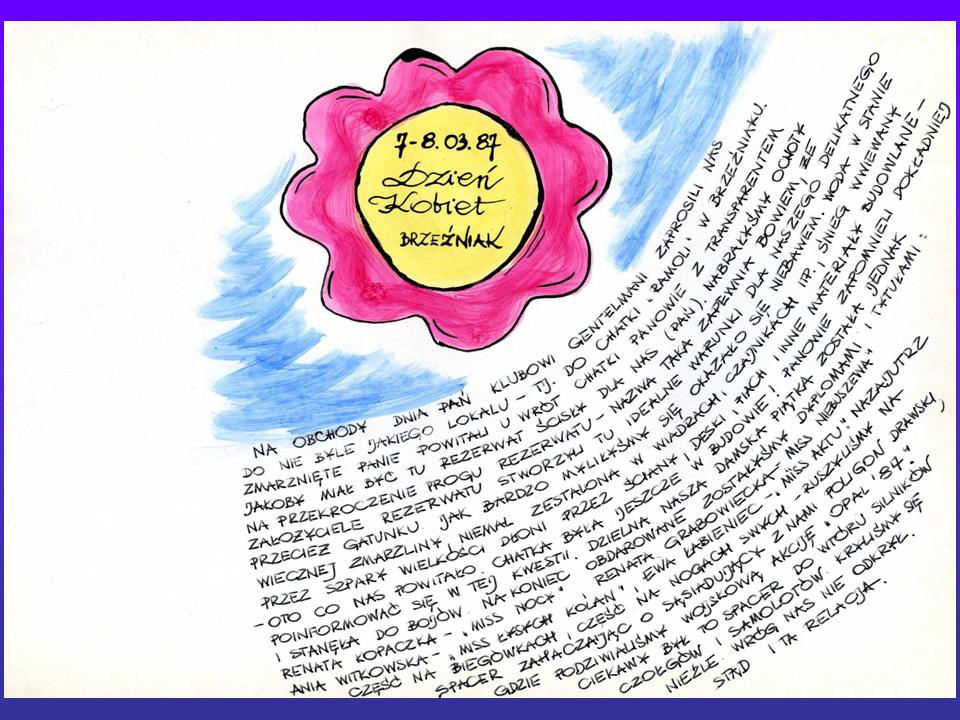 7-8.03.87
Dzień
Kobiet
BRZEŹNIAK
NA OBCHODY DNIA PAŃ KLUBOWI GENTELMANI ZAPROSILI NAS
DO NIE BYLE JAKIEGO LOKALU – TJ. DO CHATKI "RAMOLI" W BRZEŹNIAKU.
ZMARZNIĘTE PANIE POWITALI U WRÓT CHATKI PANOWIE Z TRANSPARENTEM
JAKOBY MIAŁ BYĆ TU REZERWAT ŚCISŁY DLA NAS (PAŃ). NABRAŁYŚMY OCHOTY
NA PRZEKROCZENIE PROGU REZERWATU – NAZWA TAKA ZAPEWNIA BOWIEM ŻE
ZAŁOŻYCIELE REZERWATU STWORZYLI TU IDEALNE WARUNKI DLA NASZEGO DELIKATNEGO
PRZECIEŻ GATUNKU. JAK BARDZO MYLIŁYŚMY SIĘ OKAZAŁO SIĘ NIEBAWEM. WODA W STANIE
WIECZNEJ ZMARZLINY, NIEMAL ZESTALONA W WIADRACH, CZAJNIKACH ITP. I ŚNIEG WWIEWANY
PRZEZ SZPARY WIELKOŚCI DŁONI PRZEZ ŚCIANY, DESKI I PIACH I INNE MATERIAŁY BUDOWLANE –
– OTO CO NAS POWITAŁO. CHATKA BYŁA JESZCZE W BUDOWIE! PANOWIE ZAPOMNIELI DOKŁADNIEJ
POINFORMOWAĆ SIĘ W TEJ KWESTII. DZIELNA NASZA DAMSKA PIĄTKA ZOSTAŁA JEDNAK
I STANĘŁA DO BOJÓW. NA KONIEC OBDAROWANE ZOSTAŁYŚMY DYPLOMAMI I TYTUŁAMI:
RENATA KOPACZKA – "MISS NOCY" RENATA GRABOWIECKA – MISS NIEBUSZEWA"
ANIA WITKOWSKA – "MISS ŁYSYCH KOLAN", EWA ŁABIENIEC – "MISS AKTU". NAZAJUTRZ
CZĘŚĆ NA BIEGÓWKACH I CZĘŚĆ NA NOGACH SWYCH – RUSZYLIŚMY NA
SPACER ZAHACZAJĄC O SĄSIADUJĄCY Z NAMI POLIGON DRAWSKI,
GDZIE PODZIWIALIŚMY WOJSKOWĄ AKCJĘ "OPAL '87."
CIEKAWY BYŁ TO SPACER DO WTÓRU SILNIKÓW
CZOŁGÓW I SAMOLOTÓW. KRYLIŚMY SIĘ
NIEŹLE. WRÓG NAS NIE ODKRYŁ.
STĄD I TA RELACJA.